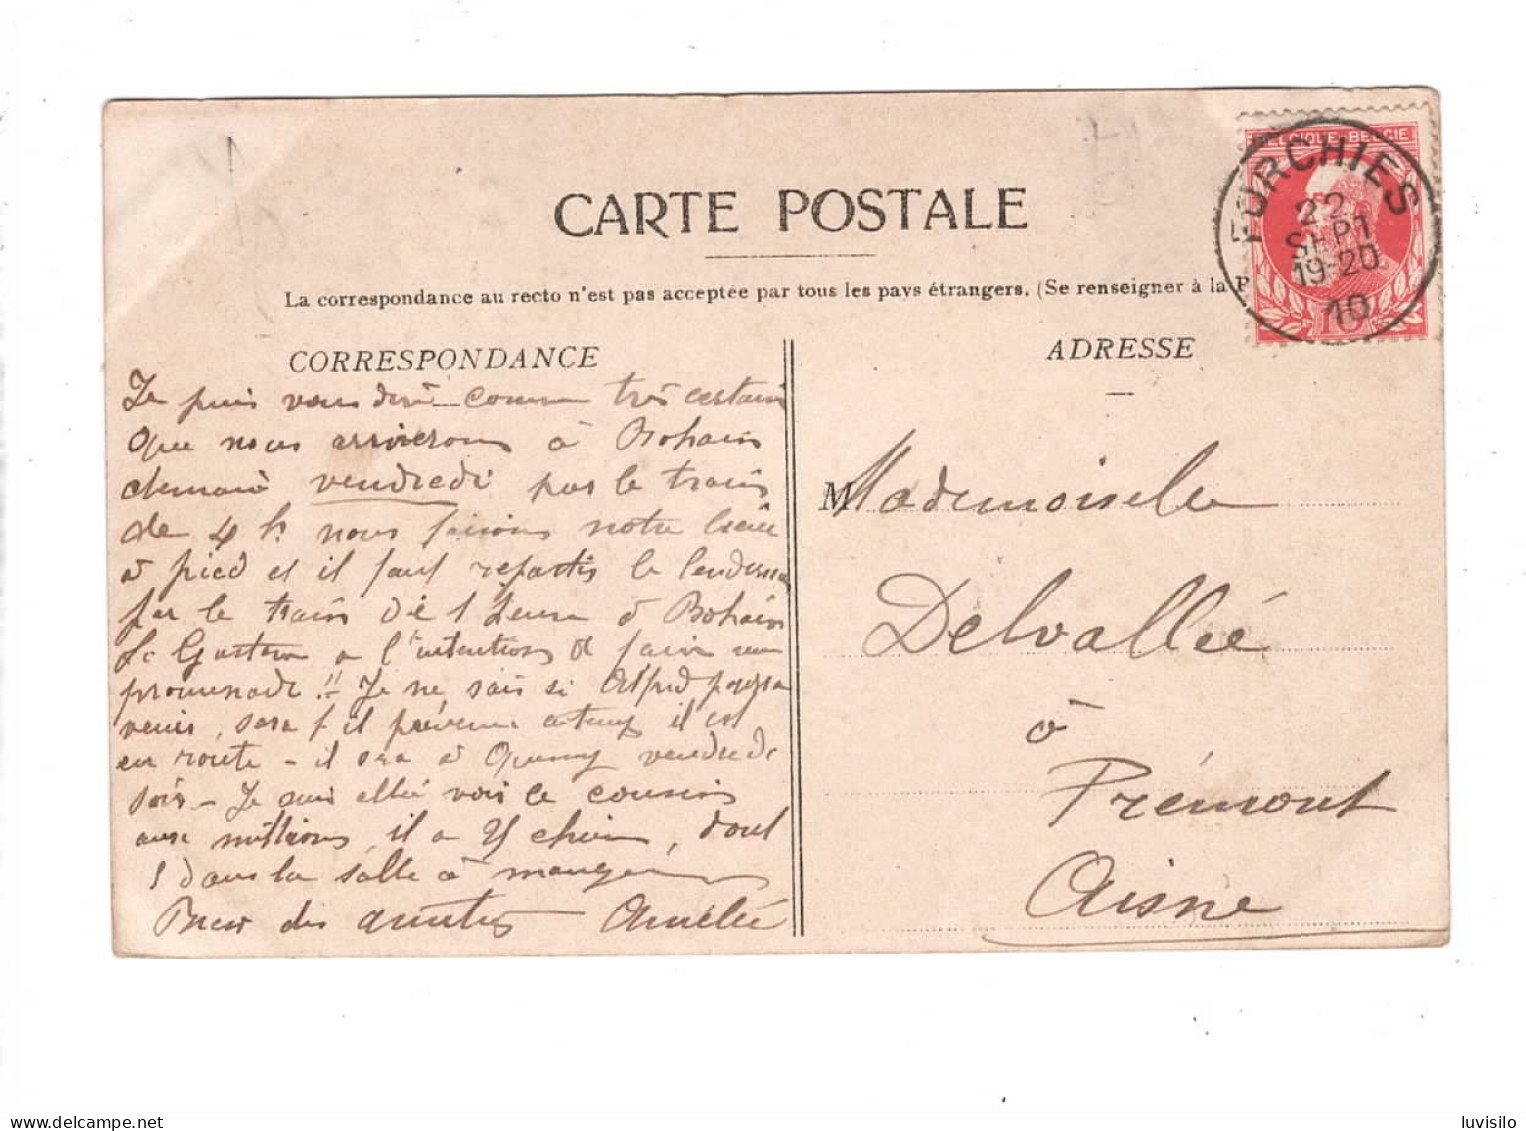 CARTE POSTALE
La correspondance au recto n'est pas acceptée par tous les pays étrangers. (Se renseigner à la P
BELGIQUE-BELGIË
FORCHIES
22
SEPT
19-20
10
10
CORRESPONDANCE
Je puis vous dire comme très certain
que nous arriverons à Bohain
demain vendredi par le train
de 4 h. nous ferions notre
à pied et il faut repartir le lendemain
par le train de 1 heure à Bohain
a l'intention de faire une
promenade !! Je ne sais si Alfred pourra
venir, sera t il prévenu à temps il est
en route - il sera à vendredi
soir - Je suis allée voir le cousin
aux millions, il a 25 chiens, dont
5 dans la salle à manger
Bien des amitiés Amélie
ADRESSE
M Mademoiselle
Delvallée
à
Prémont
Aisne
luvisilo